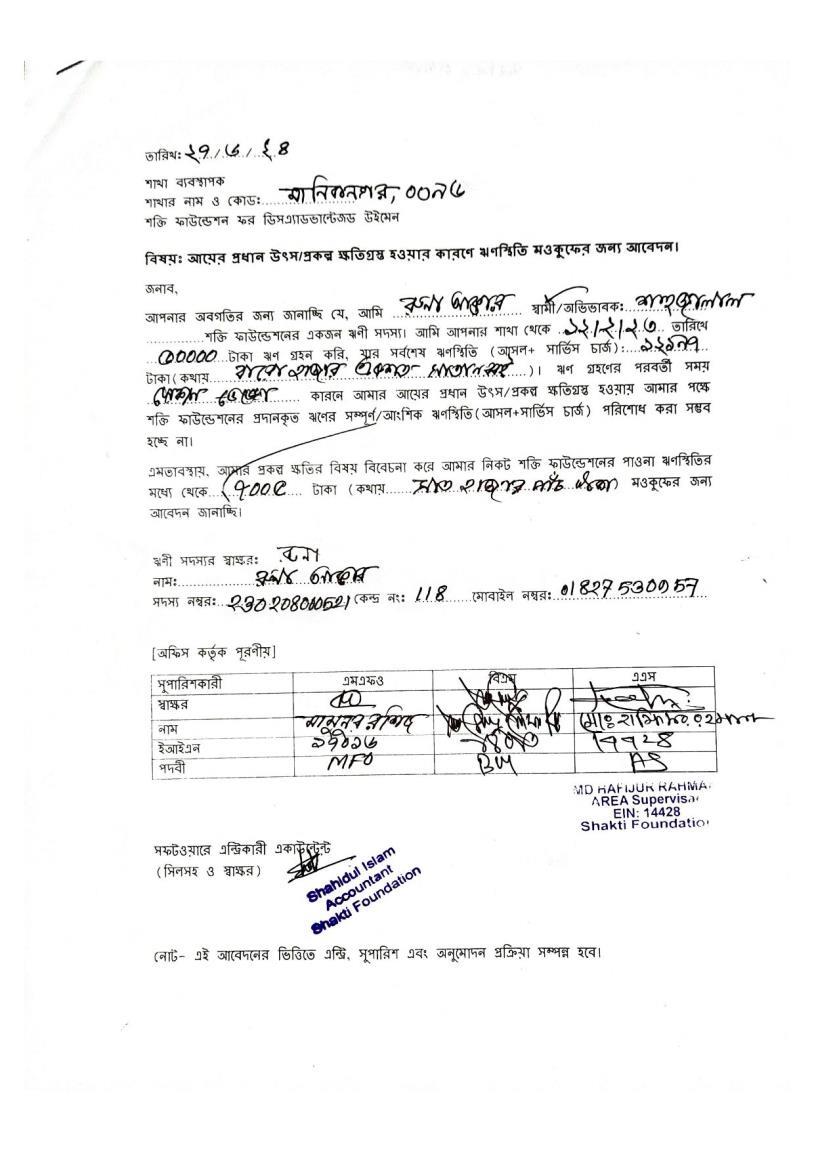 তারিখ: ২৭/৬/২৪
শাখা ব্যবস্থাপক
শাখার নাম ও কোড: মানিকনগর, ০০৭৬
শক্তি ফাউন্ডেশন ফর ডিসএ্যাডভান্টেজড উইমেন
বিষয়ঃ আয়ের প্রধান উৎস/প্রকল্প ক্ষতিগ্রস্ত হওয়ার কারণে ঋণস্থিতি মওকুফের জন্য আবেদন।
জনাব,
আপনার অবগতির জন্য জানাচ্ছি যে, আমি আক্তার স্বামী/অভিভাবক:
শক্তি ফাউন্ডেশনের একজন ঋণী সদস্য। আমি আপনার শাখা থেকে ১২/২/২৩ তারিখে
৫০০০০ টাকা ঋণ গ্রহন করি, যার সর্বশেষ ঋণস্থিতি (আসল+ সার্ভিস চার্জ):
টাকা(কথায় বারো হাজার একশত )। ঋণ গ্রহণের পরবর্তী সময়
কারনে আমার আয়ের প্রধান উৎস/প্রকল্প ক্ষতিগ্রস্ত হওয়ায় আমার পক্ষে
শক্তি ফাউন্ডেশনের প্রদানকৃত ঋণের সম্পূর্ণ/আংশিক ঋণস্থিতি(আসল+সার্ভিস চার্জ) পরিশোধ করা সম্ভব
হচ্ছে না।
এমতাবস্থায়, আমার প্রকল্প ক্ষতির বিষয় বিবেচনা করে আমার নিকট শক্তি ফাউন্ডেশনের পাওনা ঋণস্থিতির
মধ্যে থেকে টাকা (কথায় সাত হাজার পাঁচ ) মওকুফের জন্য
আবেদন জানাচ্ছি।
ঋণী সদস্যর স্বাক্ষর:
নাম: আক্তার
সদস্য নম্বর: 23020800521 কেন্দ্র নং: 118 মোবাইল নম্বর: 01827530957
[অফিস কর্তৃক পূরণীয়]
সুপারিশকারী এমএফও বিএম এএস
স্বাক্ষর
নাম মামুনুর রশিদ
ইআইএন
পদবী MFO BM AS
MD HAFIJUR RAHMA
AREA Supervisa
EIN: 14428
Shakti Foundatio
সফটওয়ারে এন্ট্রিকারী একাউন্টেন্ট
(সিলসহ ও স্বাক্ষর)
Shahidul Islam
Accountant
Shakti Foundation
নোট- এই আবেদনের ভিত্তিতে এন্ট্রি, সুপারিশ এবং অনুমোদন প্রক্রিয়া সম্পন্ন হবে।